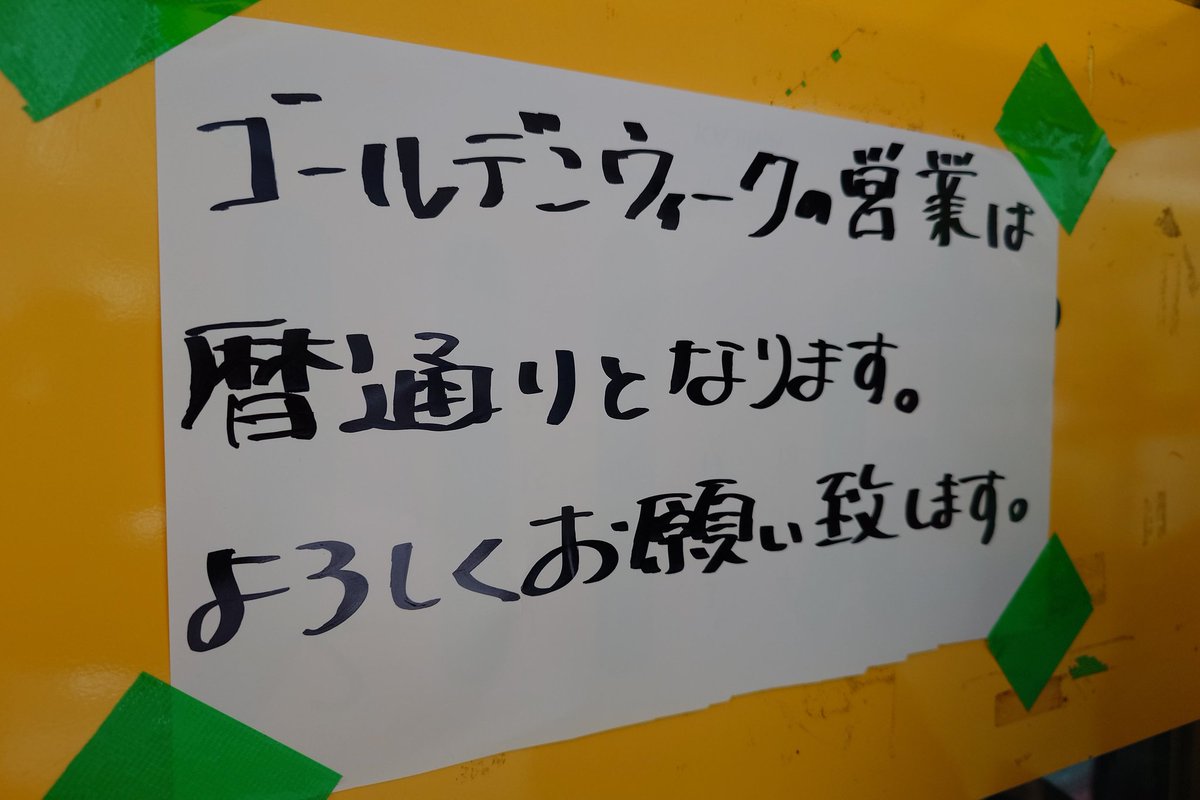 ゴールデンウィークの営業は
暦通りとなります。
よろしくお願い致します。